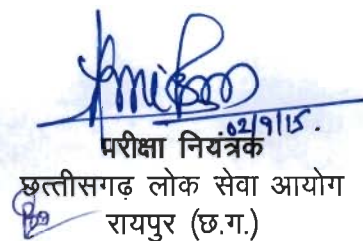 02/9/15.
परीक्षा नियंत्रक
छत्तीसगढ़ लोक सेवा आयोग
रायपुर (छ.ग.)